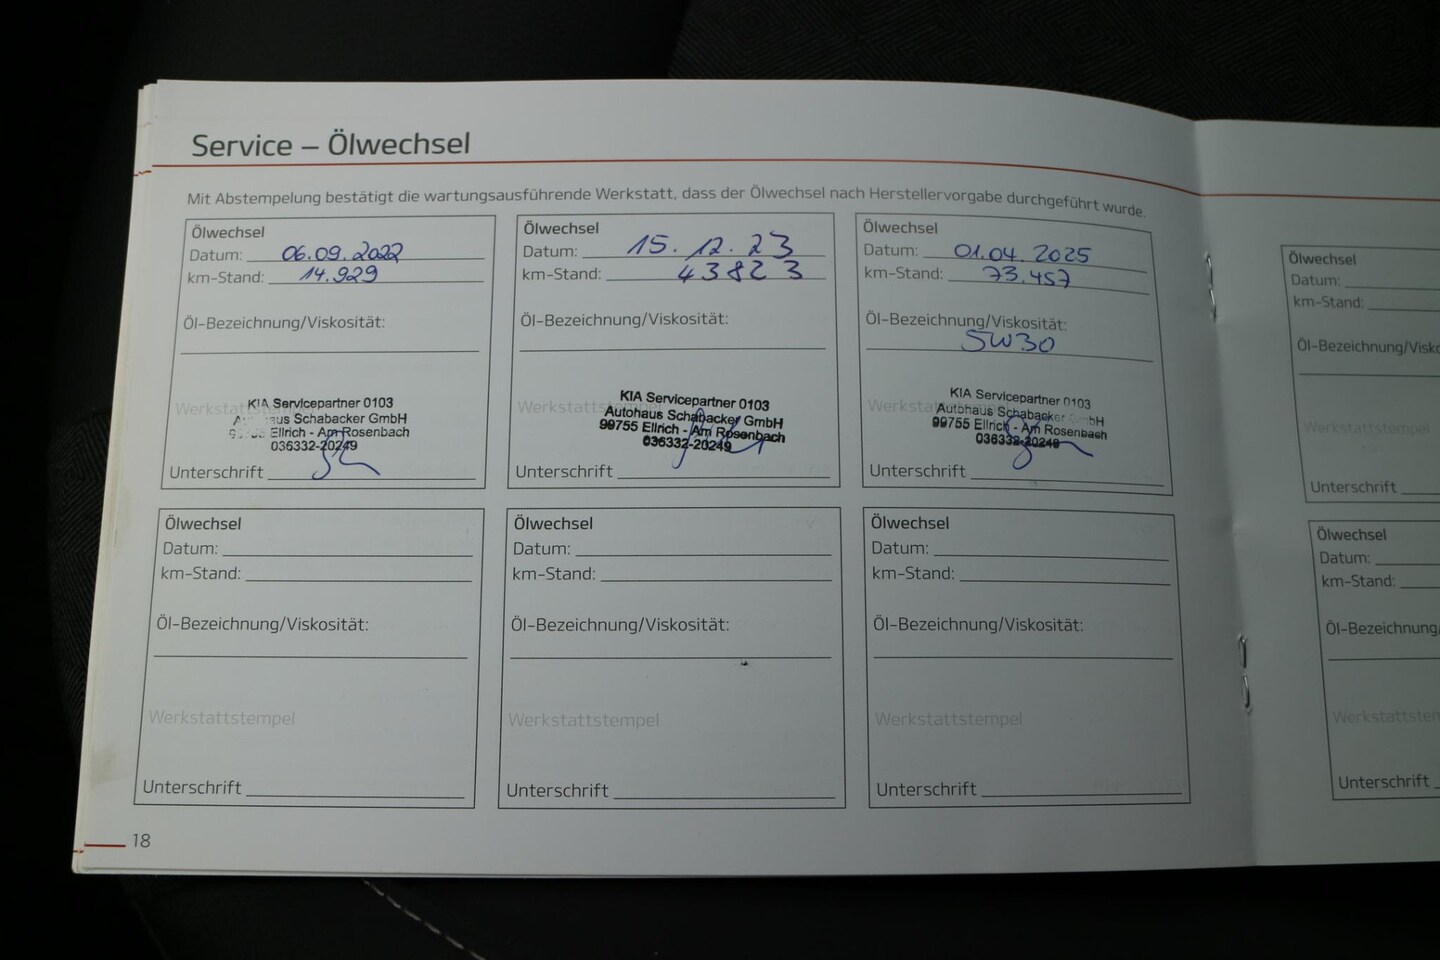 Service – Ölwechsel
Mit Abstempelung bestätigt die wartungsausführende Werkstatt, dass der Ölwechsel nach Herstellervorgabe durchgeführt wurde.
Ölwechsel
Datum: 06.09.2022
km-Stand: 14.929
Öl-Bezeichnung/Viskosität:
Werkstattstempel
KIA Servicepartner 0103
Schabacker GmbH
Ellrich - Am Rosenbach
036332-20249
Unterschrift
Ölwechsel
Datum: 15.12.23
km-Stand: 43823
Öl-Bezeichnung/Viskosität:
Werkstattstempel
KIA Servicepartner 0103
Autohaus Schabacker GmbH
99755 Ellrich - Am Rosenbach
036332-20249
Unterschrift
Ölwechsel
Datum: 01.04.2025
km-Stand: 73.457
Öl-Bezeichnung/Viskosität:
5W30
Werkstattstempel
KIA Servicepartner 0103
Autohaus Schabacker GmbH
99755 Ellrich - Am Rosenbach
036332-20249
Unterschrift
Ölwechsel
Datum:
km-Stand:
Öl-Bezeichnung/Visko
Werkstattstempel
Unterschrift
Ölwechsel
Datum:
km-Stand:
Öl-Bezeichnung/Viskosität:
Werkstattstempel
Unterschrift
Ölwechsel
Datum:
km-Stand:
Öl-Bezeichnung/Viskosität:
Werkstattstempel
Unterschrift
Ölwechsel
Datum:
km-Stand:
Öl-Bezeichnung/Viskosität:
Werkstattstempel
Unterschrift
Ölwechsel
Datum:
km-Stand:
Öl-Bezeichnung/
Werkstattstem
Unterschrift
18